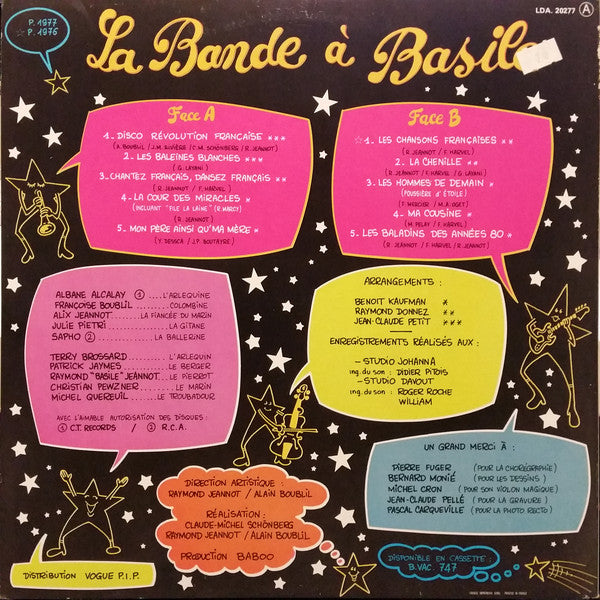 P. 1977
☆ P. 1976
La Bande à Basile
LDA. 20277 A
Face A
1_ DISCO RÉVOLUTION FRANÇAISE ***
(A. BOUBLIL / J.M. RIVIÈRE / C.M. SCHÖNBERG / R. JEANNOT)
2_ LES BALEINES BLANCHES ***
(G. LAYANI)
3_ CHANTEZ FRANÇAIS, DANSEZ FRANÇAIS **
(R. JEANNOT / F. HARVEL)
4_ LA COUR DES MIRACLES *
(INCLUANT "FILE LA LAINE" (R. MARCY)
(R. JEANNOT)
5_ MON PÈRE AINSI QU'MA MÈRE *
(Y. DESSCA / J.P. BOUTAYRE)
Face B
☆ 1_ LES CHANSONS FRANÇAISES **
(R. JEANNOT / F. HARVEL / G. LAYANI)
2_ LA CHENILLE **
(R. JEANNOT / F. HARVEL)
3_ LES HOMMES DE DEMAIN *
(POUSSIÈRE D'ÉTOILE)
(F. MERCIER / M. AUGET)
4_ MA COUSINE *
(M. PELAY / F. HARVEL)
5_ LES BALADINS DES ANNÉES 80 *
(R. JEANNOT / F. HARVEL / R. JEANNOT)
ALBANE ALCALAY ① .... L'ARLEQUINE
FRANÇOISE BOUBLIL ......... COLOMBINE
ALIX JEANNOT ..... LA FIANCÉE DU MARIN
JULIE PIETRI .............. LA GITANE
SAPHO ② ............ LA BALLERINE
TERRY BROSSARD .......... L'ARLEQUIN
PATRICK JAYMES ............ LE BERGER
RAYMOND "BASILE" JEANNOT .. LE PIERROT
CHRISTIAN PEWZNER ......... LE MARIN
MICHEL QUEREUIL ..... LE TROUBADOUR
AVEC L'AIMABLE AUTORISATION DES DISQUES :
① C.T. RECORDS / ② R.C.A.
ARRANGEMENTS :
BENOIT KAUFMAN *
RAYMOND DONNEZ **
JEAN-CLAUDE PETIT ***
ENREGISTREMENTS RÉALISÉS AUX :
_ STUDIO JOHANNA
ing. du son : DIDIER PITOIS
_ STUDIO DAVOUT
ing. du son : ROGER ROCHE
WILLIAM
UN GRAND MERCI À :
PIERRE FUGER (POUR LA CHORÉGRAPHIE)
BERNARD MONIÉ (POUR LES DESSINS)
MICHEL CRON (POUR SON VIOLON MAGIQUE)
JEAN-CLAUDE PELLÉ (POUR LA GRAVURE)
PASCAL CARQUEVILLE (POUR LA PHOTO RECTO)
DIRECTION ARTISTIQUE :
RAYMOND JEANNOT / ALAIN BOUBLIL
RÉALISATION :
CLAUDE-MICHEL SCHÖNBERG
RAYMOND JEANNOT / ALAIN BOUBLIL
PRODUCTION BABOO
DISTRIBUTION VOGUE P.I.P.
DISPONIBLE EN CASSETTE :
B.VAC. 747